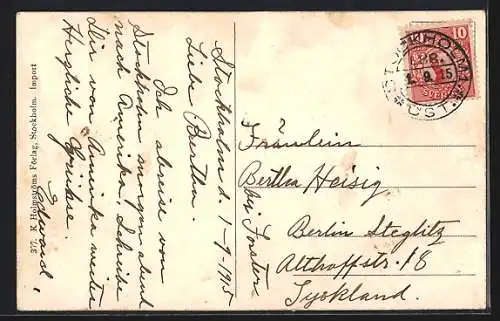 Stockholm d. 1-9-1915
Liebe Bertha.
Ich abreise von
Stockholm morgen abend
nach Amerika. Schreibe
Dir von Amerika weiter
Herzliche Grüsse
Edward.
377. K Holmströms Förlag, Stockholm. Import
10
STOCKHOLM
1. 9. 15
ÖST.
Fräulein
Bertha Heisig
bij Forster
Berlin Steglitz
Althoffstr. 18
Tyskland.